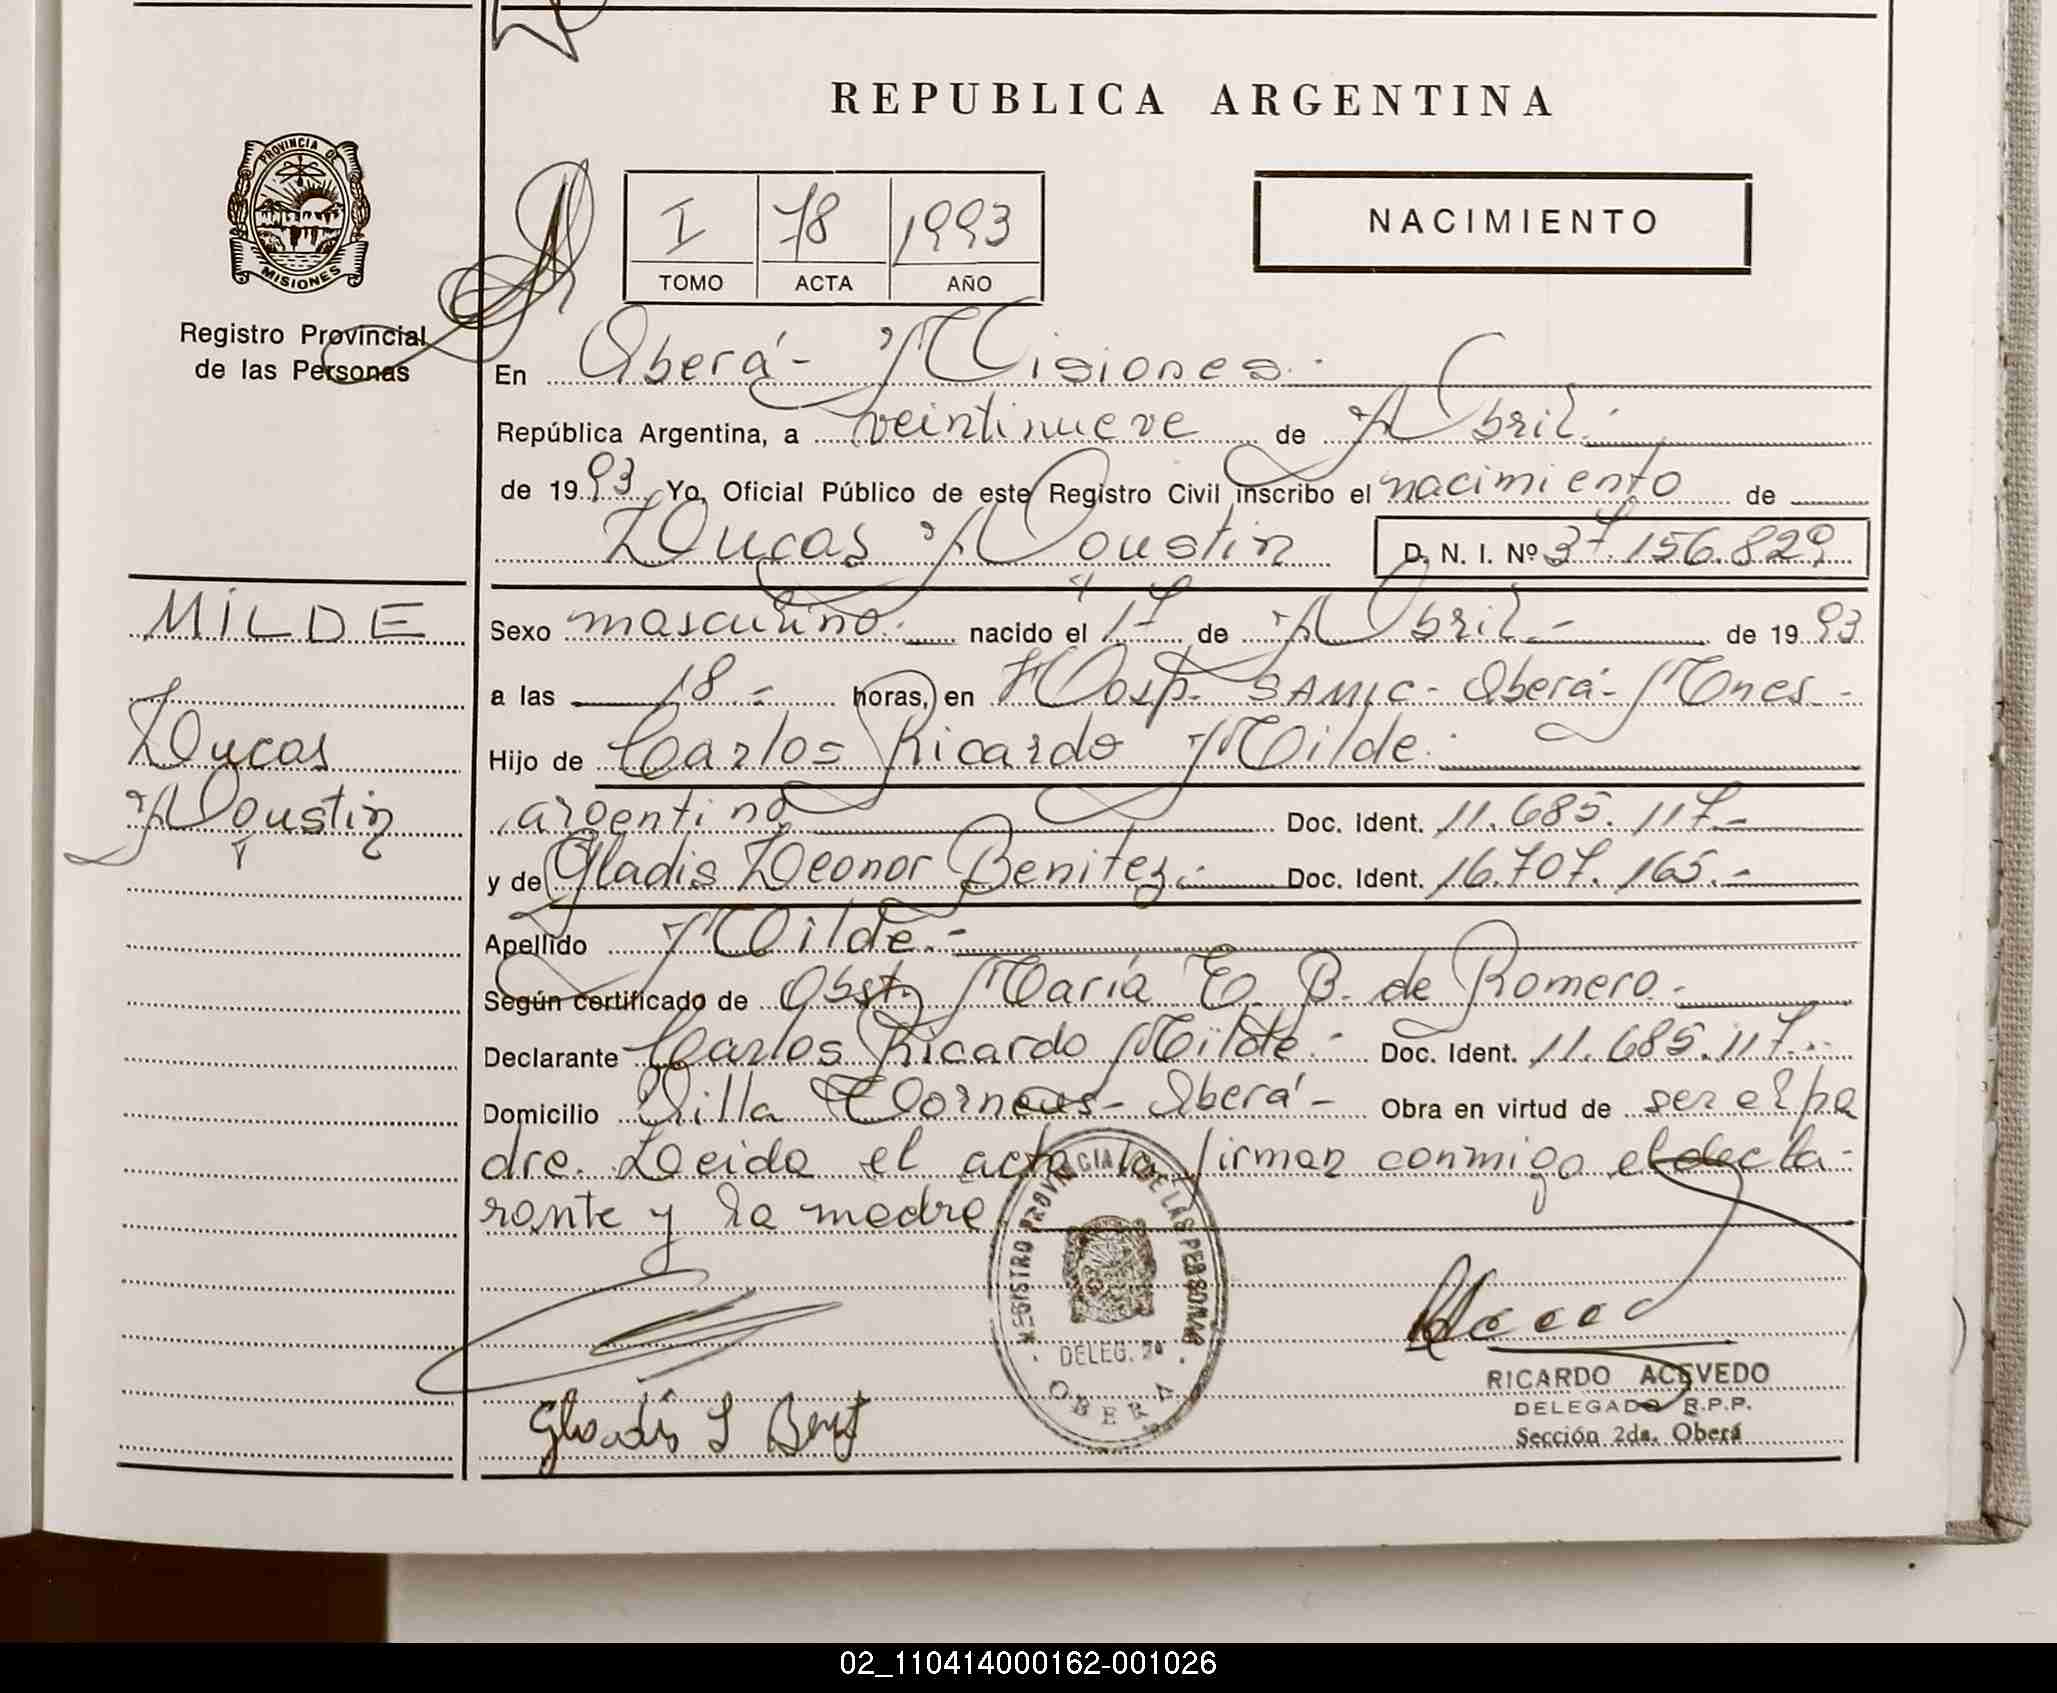 REPUBLICA ARGENTINA
PROVINCIA DE
MISIONES
Registro Provincial
de las Personas
I 78 1993
TOMO ACTA AÑO
NACIMIENTO
En Oberá - Misiones.-
República Argentina, a veintinueve de Abril.-
de 1993. Yo, Oficial Público de este Registro Civil inscribo el nacimiento de
Lucas Agustin D. N. I. Nº 37.156.829
MILDE
Lucas
Agustin
Sexo masculino.- nacido el 17 de Abril.- de 1993
a las 18.- horas, en Hosp. SAMIC - Oberá - Mnes.-
Hijo de Carlos Ricardo Milde.-
argentino Doc. Ident. 11.685.117.-
y de Gladis Leonor Benitez.- Doc. Ident. 16.707.165.-
Apellido Milde.-
Según certificado de Obst. María E. B. de Romero.-
Declarante Carlos Ricardo Milde.- Doc. Ident. 11.685.117.-
Domicilio Villa - Oberá - Obra en virtud de ser el pa
dre. Leida el acta la firman conmigo el decla-
rante y la madre
REGISTRO PROVINCIAL DE LAS PERSONAS
DELEG. 2ª
OBERA
Gladis L Benit
RICARDO ACEVEDO
DELEGADO R.P.P.
Sección 2da. Oberá
02_110414000162-001026